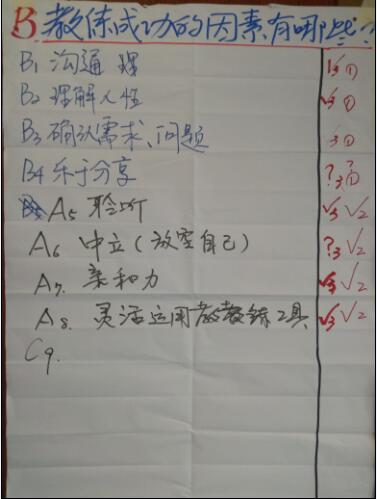 B 教练成功的因素有哪些?
B1 沟通 理 ①
B2 理解人性 √3 ①
B3 确认需求、问题 3 ①
B4 乐于分享 ?3 ①
A5 聆听 √3 √2
A6 中立(放空自己) ?3 √2
A7. 亲和力 √3 √2
A8. 灵活运用教练工具 √3 √2
C9.